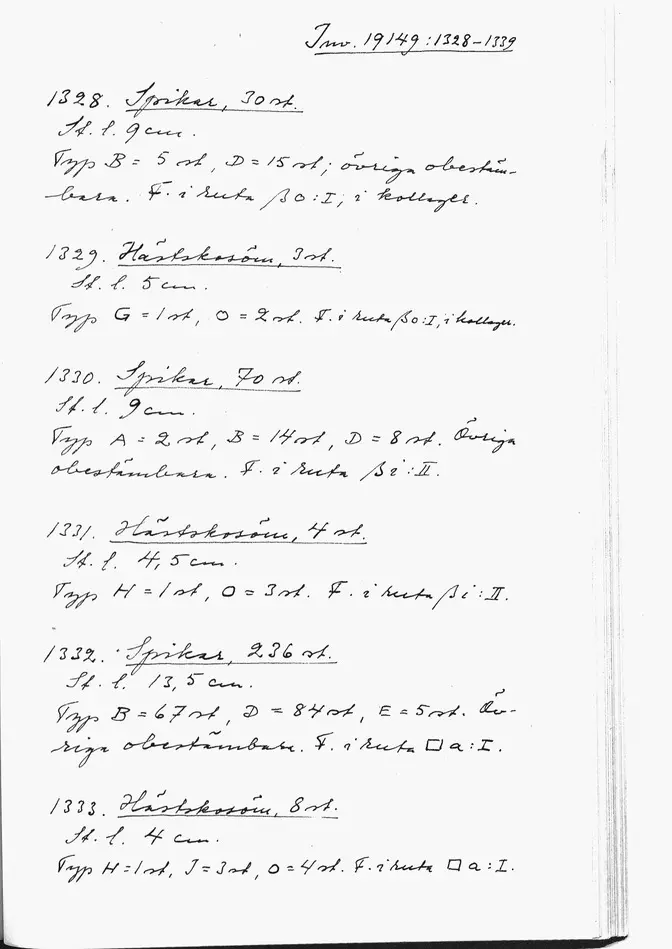 Inv. 19149:1328-1339
1328. Spikar, 30 st.
St. l. 9 cm.
Typ B = 5 st, D = 15 st; övriga obestäm-
bara. F. i ruta βo:I; i kollager.
1329. Hästskosöm, 3 st.
St. l. 5 cm.
Typ G = 1 st, O = 2 st. F. i ruta βo:I, i kollager.
1330. Spikar, 70 st.
St. l. 9 cm.
Typ A = 2 st, B = 14 st, D = 8 st. Övriga
obestämbara. F. i ruta βi:II.
1331. Hästskosöm, 4 st.
St. l. 4,5 cm.
Typ H = 1 st, O = 3 st. F. i ruta βi:II.
1332. Spikar, 236 st.
St. l. 13,5 cm.
Typ B = 67 st, D = 84 st, E = 5 st. Öv-
riga obestämbara. F. i ruta □a:I.
1333. Hästskosöm, 8 st.
St. l. 4 cm.
Typ H = 1 st, J = 3 st, O = 4 st. F. i ruta □a:I.